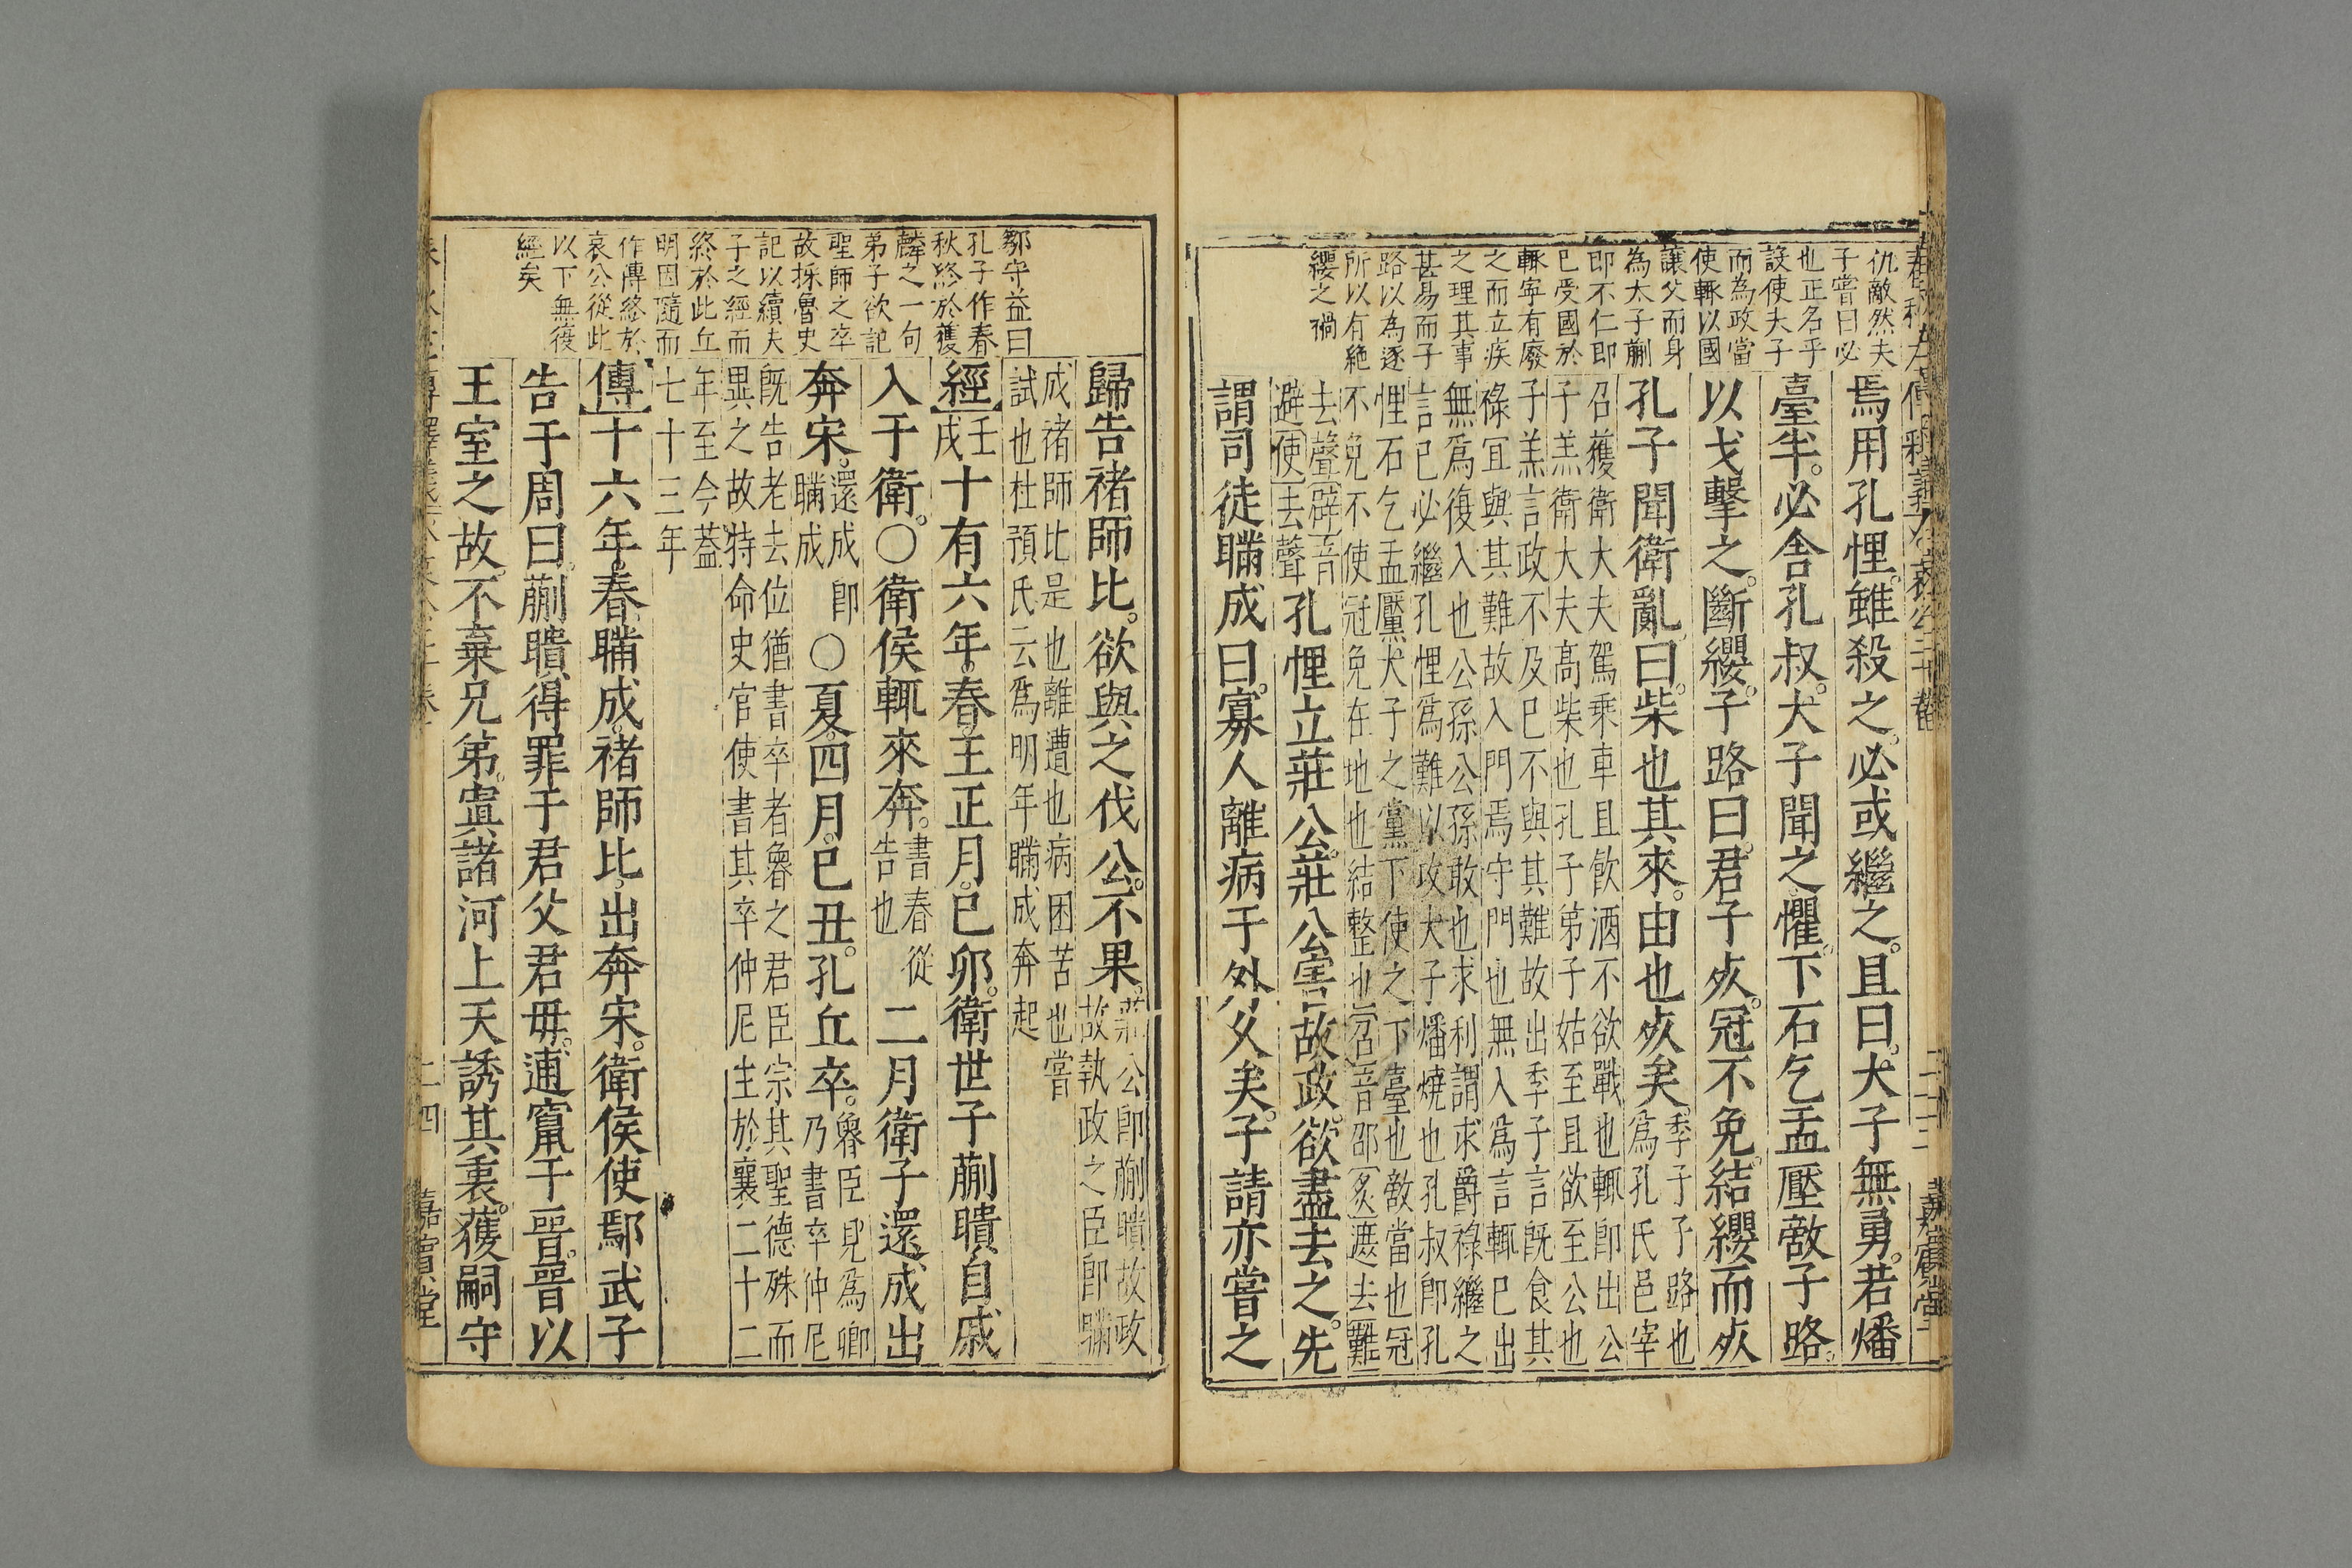 仇敵然夫
子嘗曰必
也正名乎
設使夫子
而為政當
使輒以國
讓父而身
為太子蒯
即不仁即
已受國於
輒寧有廢
之而立疾
之理其事
甚易而子
路以為逐
所以有絶
纓之禍
焉用孔悝。雖殺之。必或繼之。且曰。犬子無勇。若燔
臺半。必舍孔叔。犬子聞之懼。下石乞盂壓敵子路。
以戈擊之。斷纓。子路曰。君子夾。冠不免。結纓而夾
孔子聞衛亂。曰。柴也其來。由也夾矣。季子子路也
為孔氏邑宰
召獲衛大夫駕乘車且飲酒不欲戰也輒即出公
子羔衛大夫髙柴也孔子弟子姑至且欲至公也
子羔言政不及已不與其難故出季子言既食其
祿宜與其難故入門焉守門也無入為言輒已出
無爲復入也公孫公孫敢也求利謂求爵祿繼之
言已必繼孔悝爲難以攻犬子燔燒也孔叔即孔
悝石乞盂黶犬子之黨下使之下臺也敵當也冠
不免不使冠免在地也結整也召音邵炙遮去難
去聲辟音
避使去聲
孔悝立莊公。莊公害故政。欲盡去之。先
謂司徒瞞成曰。寡人離病于外父矣。子請亦嘗之
鄒守益曰
孔子作春
秋終於獲
麟之一句
弟子欲記
聖師之卒
故採魯史
記以續夫
子之經而
終於此丘
明因隨而
作傳終於
哀公從此
以下無復
經矣
歸告褚師比。欲與之伐公。不果。莊公即蒯聵故政
故執政之臣即瞞
成褚師比是也離遭也病困苦也嘗
試也杜預氏云爲明年瞞成奔起
經壬
戌十有六年。春。王正月。已卯。衛世子蒯聵自戚
入于衛。○衛侯輒來奔。書春從
告也二月衛子還成出
奔宋。還成即
瞞成○夏。四月。已丑。孔丘卒。魯臣見為卿
乃書卒仲尼
既告老去位猶書卒者魯之君臣宗其聖德殊而
異之故特命史官使書其卒仲尼生於襄二十二
年至今葢
七十三年
傳十六年。春。瞞成。褚師比。出奔宋。衛侯使鄢武子
告于周曰。蒯聵得罪于君父君毋。逋竄于晉。晉以
王室之故。不棄兄弟。寘諸河上天誘其裏。獲嗣守
二四
嘉賓堂